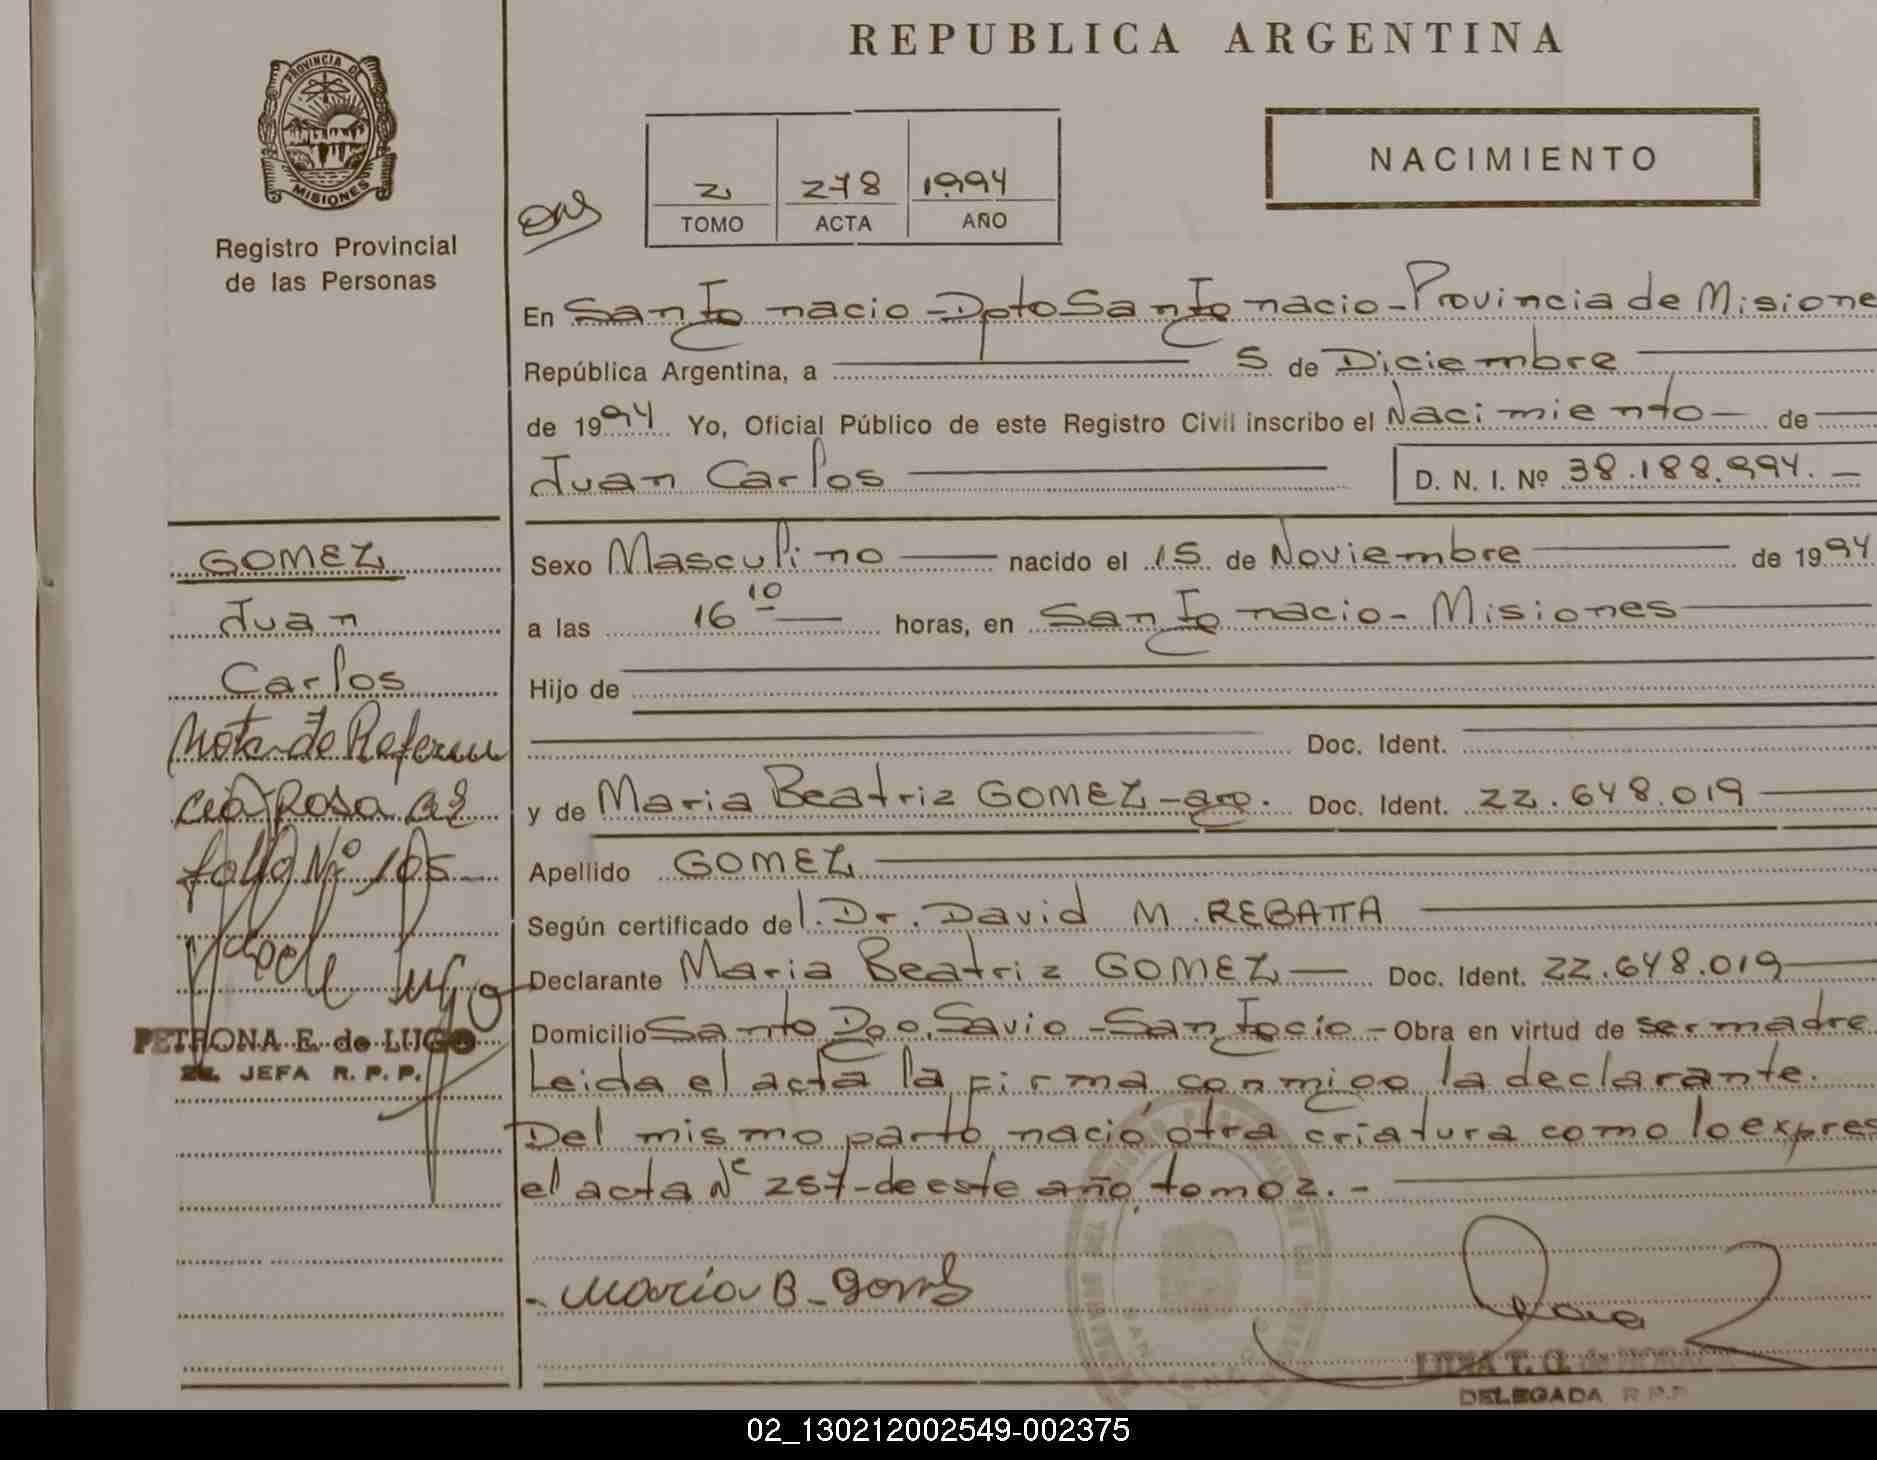 REPUBLICA ARGENTINA
PROVINCIA DE MISIONES
Registro Provincial
de las Personas
2 278 1994
TOMO ACTA AÑO
NACIMIENTO
En San Ignacio - Dpto San Ignacio - Provincia de Misione
República Argentina, a 5 de Diciembre
de 1994 Yo, Oficial Público de este Registro Civil inscribo el Nacimiento de
Juan Carlos D. N. I. Nº 38.188.994.-
GOMEZ
Juan
Carlos
Nota de Referen
cia Rosa
folio Nº 105
PETRONA E. de LUGO
JEFA R. P. P.
Sexo Masculino nacido el 15 de Noviembre de 1994
a las 16 10 horas, en San Ignacio - Misiones
Hijo de
Doc. Ident.
y de Maria Beatriz GOMEZ - arg. Doc. Ident. 22.648.019
Apellido GOMEZ
Según certificado del. Dr. David M. REBATTA
Declarante Maria Beatriz GOMEZ Doc. Ident. 22.648.019
Domicilio Santo Dgo. Savio - San Igcio - Obra en virtud de ser madre
Leida el acta la firma conmigo la declarante.
Del mismo parto nació otra criatura como lo expres
el acta Nº 257 - de este año, tomo 2. -
- María B - Gomez
DELEGADA R.P.P
02_130212002549-002375